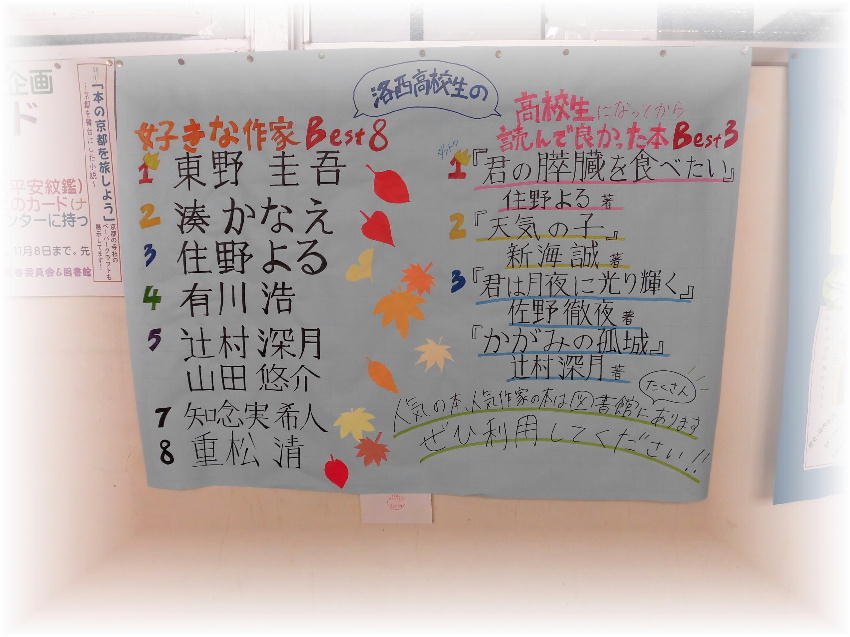 洛西高校生の
好きな作家Best8
1 東野 圭吾
2 湊かなえ
3 住野よる
4 有川浩
5 辻村深月
山田悠介
7 知念実希人
8 重松清
高校生になってから
読んで良かった本Best3
1 『君の膵臓を食べたい』
住野よる 著
2 『天気の子』
新海誠 著
3 『君は月夜に光り輝く』
佐野徹夜 著
『かがみの孤城』
辻村深月 著
たくさん
人気の本、人気作家の本は図書館にあります
ぜひ利用してください!!
企画
ド
平安紋鑑)
のカード(ナ
ンターに持っ
11月8日まで。先
委員会&図書館
「本の京都を旅しよう」
~京都を舞台にした小説~